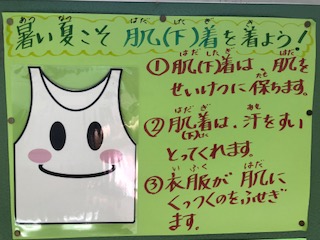 暑い夏こそ 肌(下)着を着よう!
①肌(下)着は、肌を
せいけつに保ちます。
②肌(下)着は、汗をすい
とってくれます。
③衣服が肌に
くっつくのをふせぎ
ます。